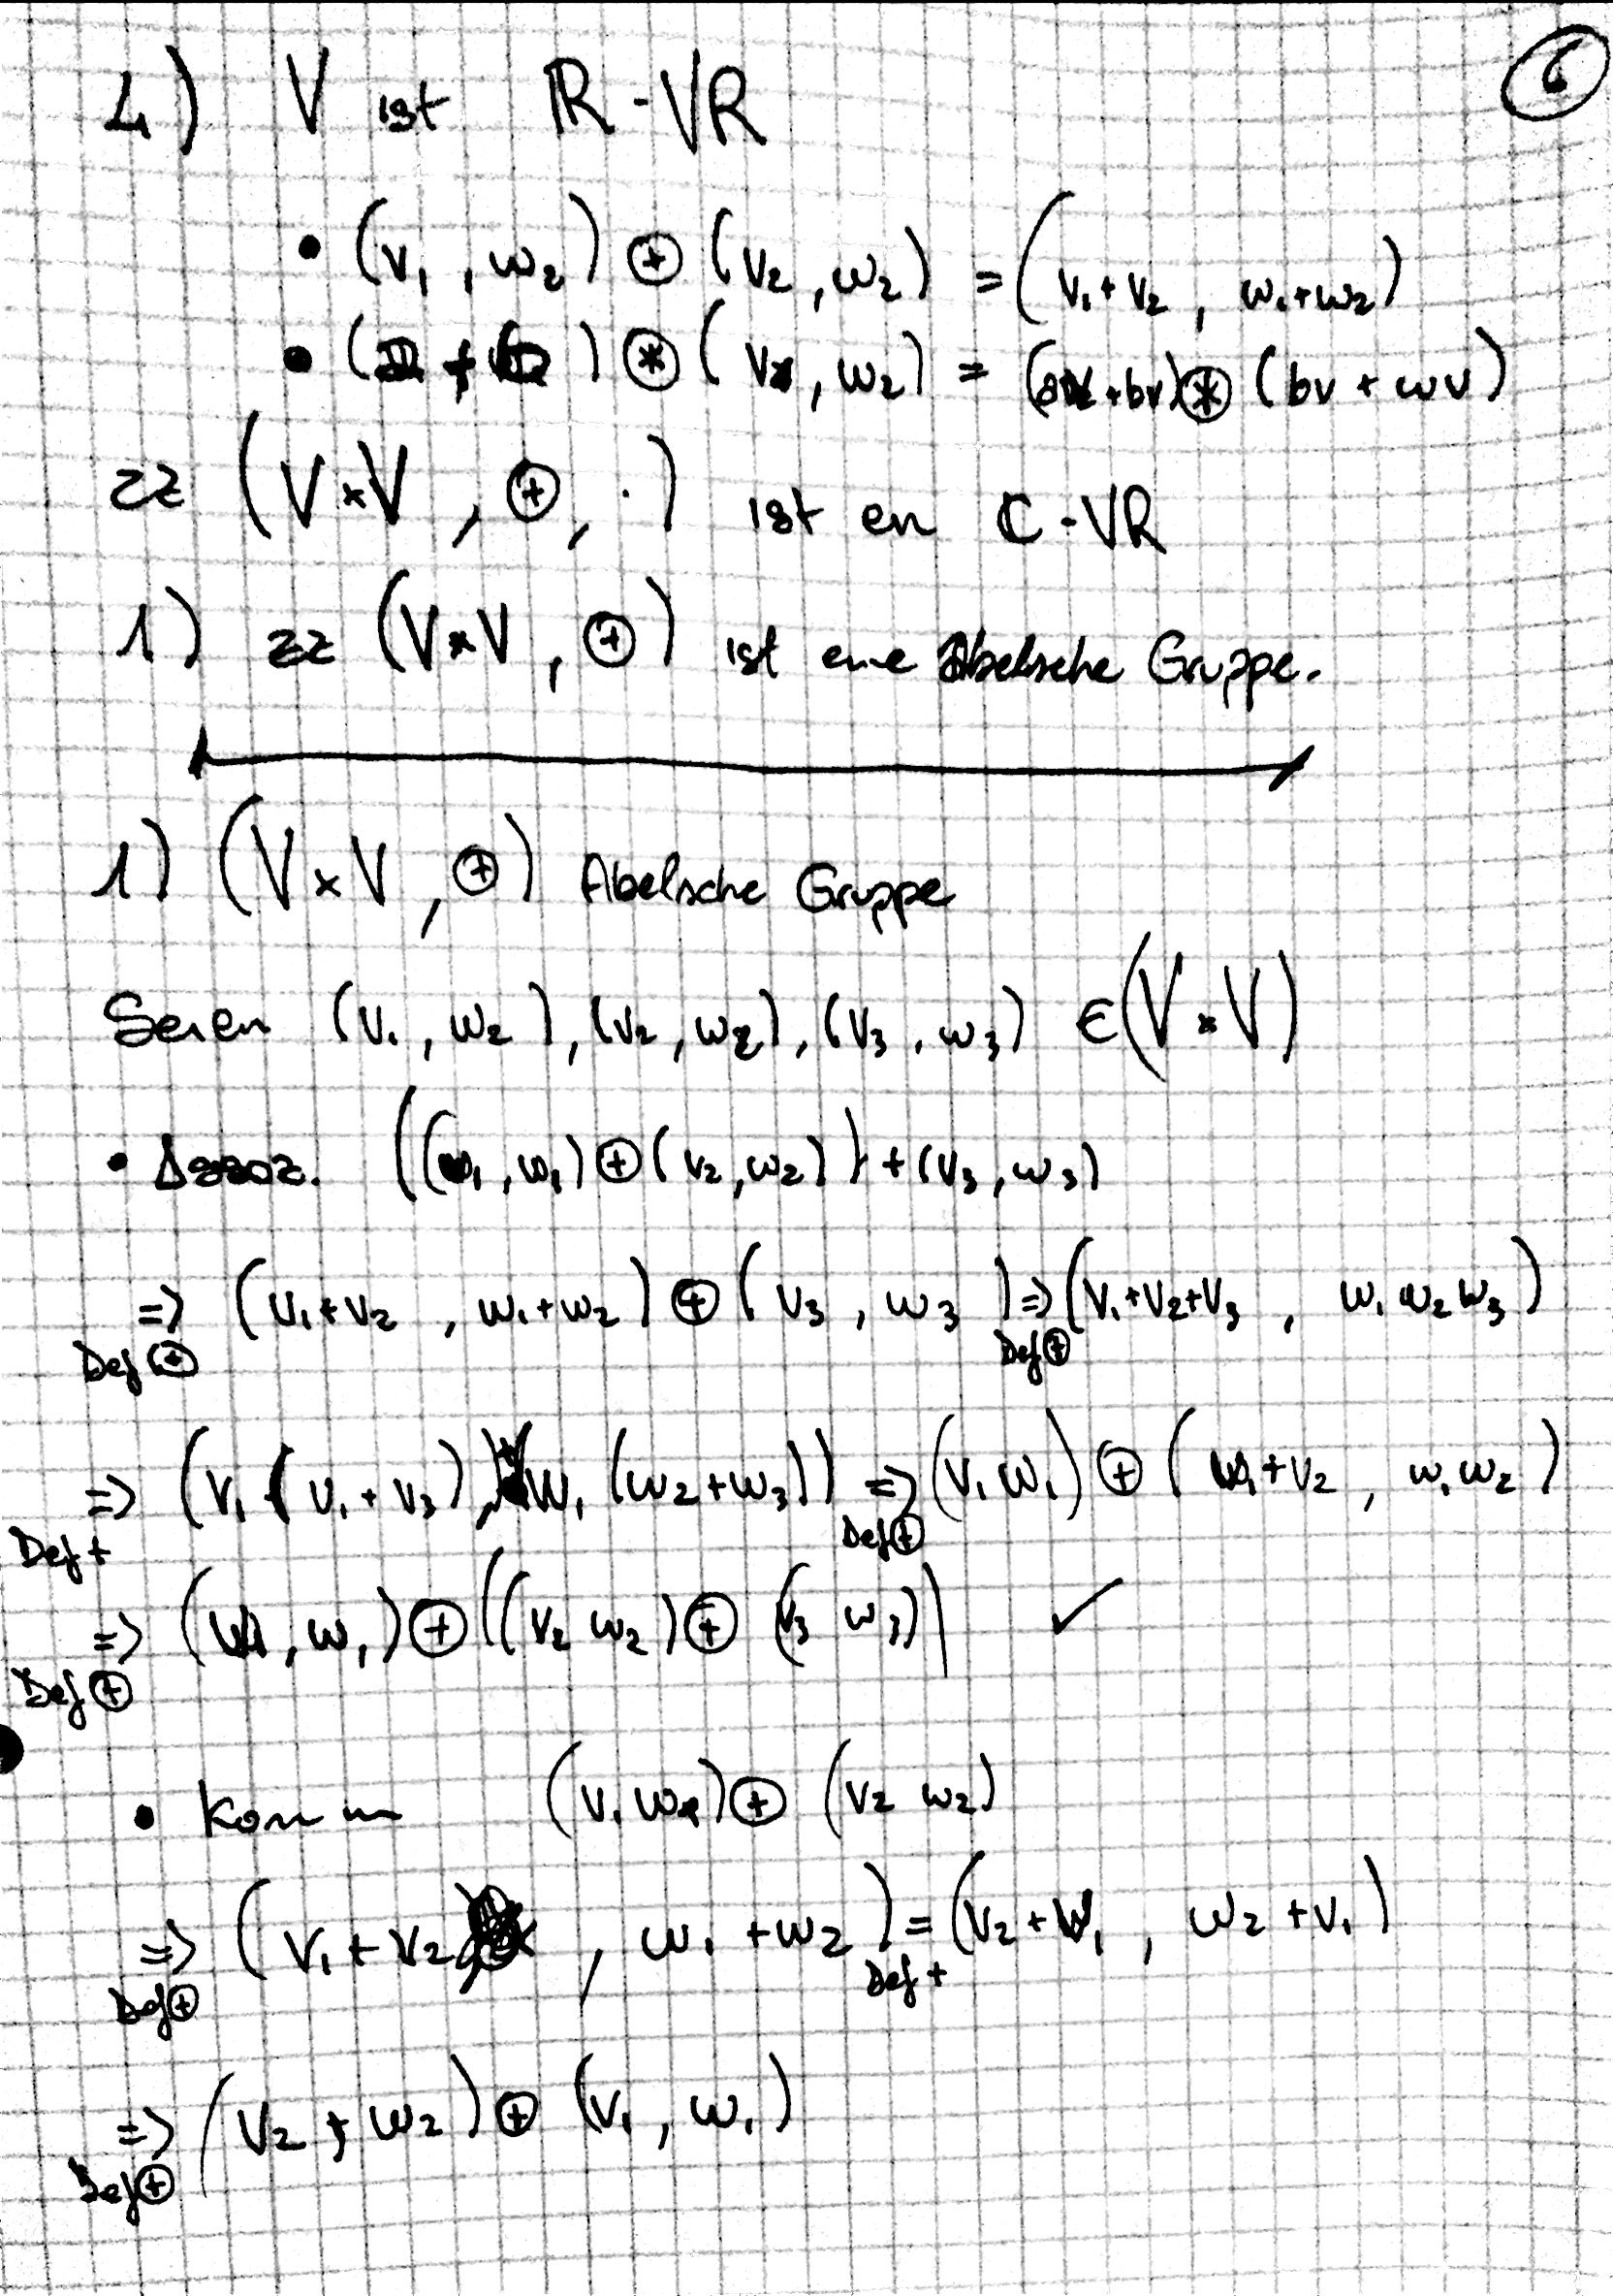 6
4) V ist ℝ-VR
• (v₁, w₂) ⊕ (v₂, w₂) = (v₁+v₂, w₁+w₂)
• ( + ) ⊛ (v, w₂) = ( +bv) ⊛ (bv + wv)
zz (V×V, ⊕, ·) ist en ℂ-VR
1) zz (V×V, ⊕) ist eine Abelsche Gruppe.
1) (V×V, ⊕) Abelsche Gruppe
Seien (v₁, w₂), (v₂, w₂), (v₃, w₃) ∈ (V×V)
• Assoz. (( , w₁) ⊕ (v₂, w₂)) + (v₃, w₃)
=> Def ⊕ (v₁+v₂, w₁+w₂) ⊕ (v₃, w₃) => Def ⊕ (v₁+v₂+v₃, w₁ w₂ w₃)
=> Def + (v₁ + (v₁+v₃), w₁ (w₂+w₃)) => Def ⊕ (v₁ w₁) ⊕ ( +v₂, w₁ w₂)
=> Def ⊕ ( , w₁) ⊕ ((v₂ w₂) ⊕ (v₃ w₃)) ✓
• Komm (v₁ w₁) ⊕ (v₂ w₂)
=> Def ⊕ (v₁+v₂, w₁+w₂) = Def + (v₂+v₁, w₂+v₁)
=> Def ⊕ (v₂, w₂) ⊕ (v₁, w₁)